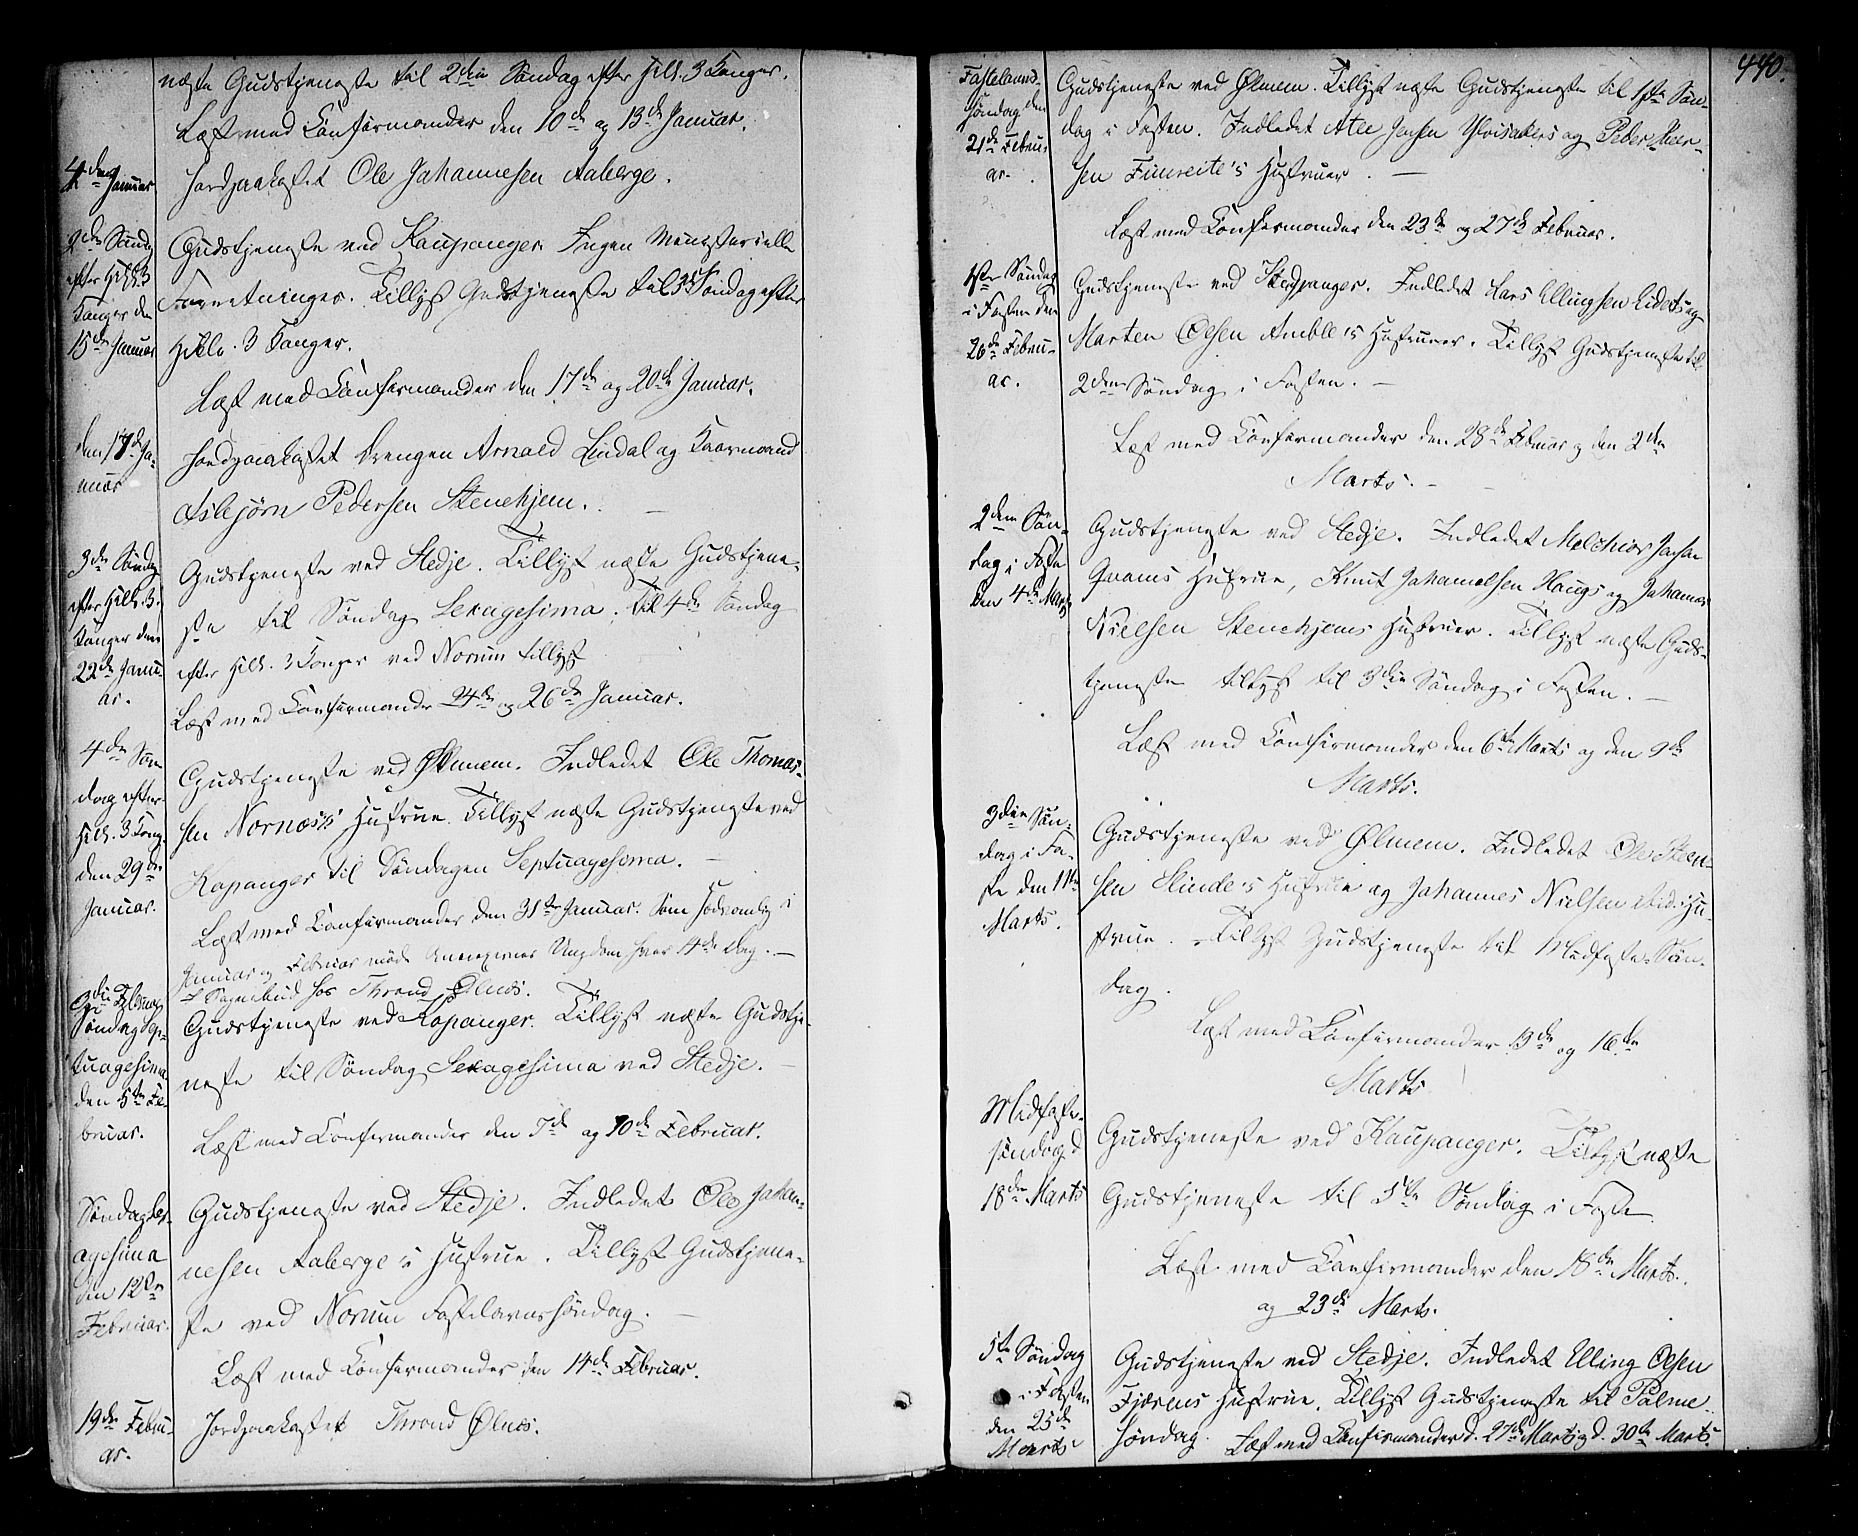 næste Gudstjeneste til 2den Søndag efter Hell. 3 Konger.
Læst med Confirmander den 10de og 13de Januar.
4de Januar
Jordpaakastet Ole Johannesen Aaberge.
2den Søndag
efter Hell. 3
Konger den
15de Januar
Gudstjeneste ved Kaupanger Ingen Ministerielle
Forretninger. Tillyst Gudstjeneste til 3die Søndag efter
Hellig 3 Konger.
Læst med Confirmander den 17de og 20de Januar.
den 17de Ja-
nuar
Jordpaakastet Drengen Arnold Lindal og Kaarmand
Asbjørn Pedersen Stenehjem.
3die Søndag
efter Hell. 3
Konger den
22de Janu-
ar.
Gudstjeneste ved Stedje. Tillyst næste Gudstjene-
ste til Søndag Sexagesima. Til 4de Søndag
efter Hell. 3 Konger ved Norum tillyst
Læst med Confirmander 24de og 26de Januar.
4de Søn
dag efter
Hell. 3 Kong.
den 29de
Januar.
Gudstjeneste ved Ølmem. Indledet Ole Thomas-
sen Nornæs's Hustrue. Tillyst næste Gudstjeneste ved
Kopanger til Søndagen Septuagesoma.
Læst med Confirmander den 31te Januar. Som sædvanlig i
Januar og Februar møde Ungdom hver 14de Dag.
hos Thrond Ølnæs.
Søndag Sep-
tuagesima
den 5te Fe-
bruar.
Gudstjeneste ved Kopanger. Tillyst næste Gudstje-
neste til Søndag Sexagesima ved Stedje.
Læst med Confirmander den 7de og 10de Februar.
Søndag Sex-
agesima
den 12te
Februar.
Gudstjeneste ved Stedje. Indledet Ole Johan-
nesen Aaberge's Hustrue. Tillyst Gudstjene-
ste ved Norum Fastelavnssøndag.
Læst med Confirmander den 14de Februar.
19de Febru-
ar.
Jordpaakastet Thrond Ølnæs.
440.
Fastelavns-
søndag den
21de Febru-
ar.
Gudstjeneste ved Ølmem. Tillyst næste Gudstjeneste til 1ste Søn-
dag i Fasten. Indledet Atle Jensen Ylvisakers og Peder Iver-
sen Fimreite's Hustruer.
Læst med Confirmander den 23de og 27de Februar.
1ste Søndag
i Fasten den
26de Febru-
ar.
Gudstjeneste ved Kaupanger. Indledet Lars Ellingsen Eidets og
Marten Olsen Amble's Hustruer. Tillyst Gudstjeneste til
2den Søndag i Fasten.
Læst med Confirmander den 28de Februar og den 2den
Marts.
2den Søn-
dag i Faste
den 4de Marts
Gudstjeneste ved Stedje. Indledet Melchior
Qvams Hustrue, Knut Haugs og Johannes
Nielsen Stenehjems Hustruer. Tillyst næste Guds-
tjeneste tillyst til 3die Søndag i Fasten.
Læst med Confirmander den 6te Marts og den 9de
Marts.
3die Søn-
dag i Fa-
ste den 11te
Marts.
Gudstjeneste ved Ølmem. Indledet Ole Steen-
sen Slinde's Hustrue og Johannes Nielsen Hu-
strue. Tillyst Gudstjeneste til Midfaste-Søn-
dag.
Læst med Confirmander 13de og 16de
Marts
Midfaste-
søndag d
18de Marts
Gudstjeneste ved Kaupanger. Tillyst næste
Gudstjeneste til 5te Søndag i Faste
Læst med Confirmander den 18de Marts
og 23de Marts.
5te Søndag
i Fasten
den 25de
Marts
Gudstjeneste ved Stedje. Indledet Elling Olsen
Fjærens Hustrue. Tillyst Gudstjeneste til Palme-
søndag. Læst med Confirmander d. 27de Marts og d. 30te Marts.